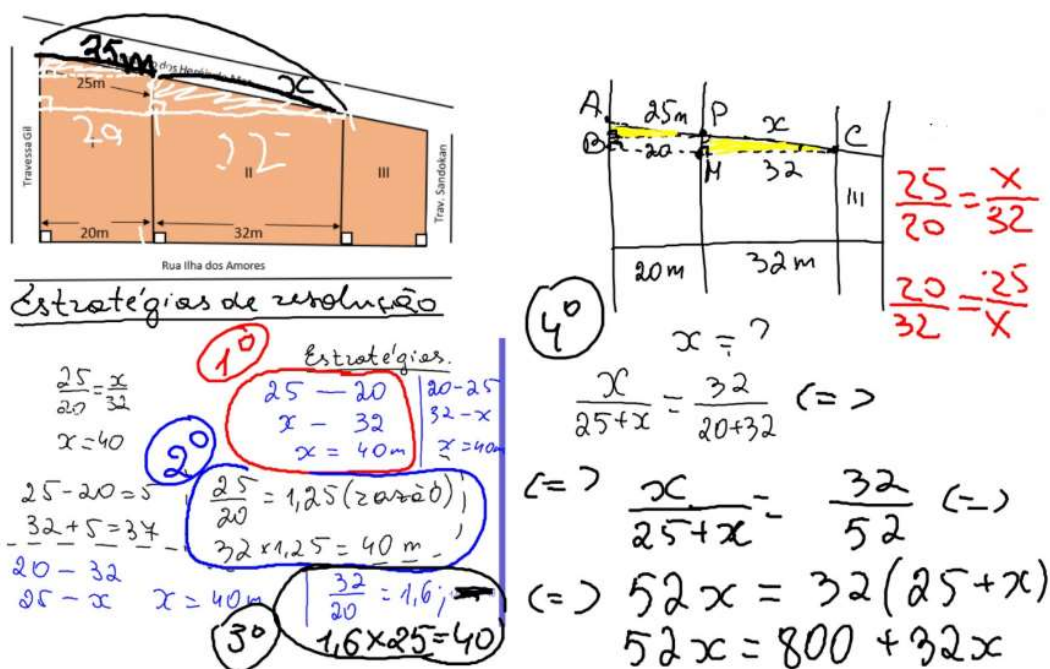 25m
dos Heróis do Mar
x
25m
20
32
I
II
III
Travessa Gil
Trav. Sandokan
20m
32m
Rua Ilha dos Amores
Estratégias de resolução
25/20 = x/32
x = 40
25-20=5
32+5=37
20 - 32
25 - x x = 40m
1º
Estratégias.
25 — 20
x - 32
x = 40m
20-25
32-x
x=40m
2º
25/20 = 1,25 (razão);
32×1,25 = 40 m.
3º
32/20 = 1,6;
1,6×25=40
A 25m P x C
B 20 M 32
III
20m 32m
25/20 = x/32
20/32 = 25/x
4º
x = ?
x/25+x = 32/20+32 <=>
<=> x/25+x = 32/52 <=>
<=> 52x = 32(25+x)
52x = 800 + 32x